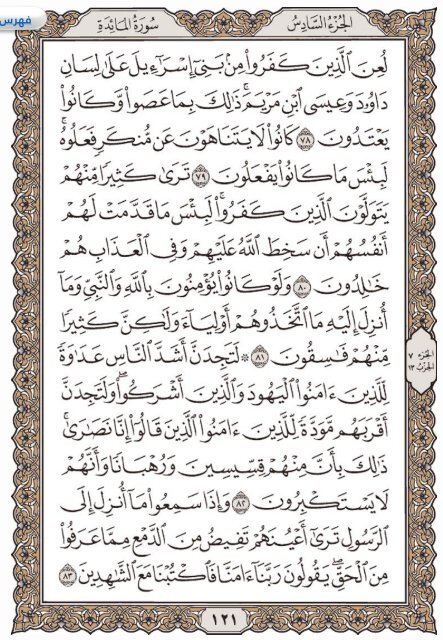 فهرس
الجزء السادس
سورة المائدة
لُعِنَ ٱلَّذِينَ كَفَرُوا۟ مِنۢ بَنِىٓ إِسْرَٰٓءِيلَ عَلَىٰ لِسَانِ
دَاوُۥدَ وَعِيسَى ٱبْنِ مَرْيَمَ ۚ ذَٰلِكَ بِمَا عَصَوا۟ وَّكَانُوا۟
يَعْتَدُونَ ٧٨ كَانُوا۟ لَا يَتَنَاهَوْنَ عَن مُّنكَرٍ فَعَلُوهُ ۚ
لَبِئْسَ مَا كَانُوا۟ يَفْعَلُونَ ٧٩ تَرَىٰ كَثِيرًا مِّنْهُمْ
يَتَوَلَّوْنَ ٱلَّذِينَ كَفَرُوا۟ ۚ لَبِئْسَ مَا قَدَّمَتْ لَهُمْ
أَنفُسُهُمْ أَن سَخِطَ ٱللَّهُ عَلَيْهِمْ وَفِى ٱلْعَذَابِ هُمْ
خَٰلِدُونَ ٨٠ وَلَوْ كَانُوا۟ يُؤْمِنُونَ بِٱللَّهِ وَٱلنَّبِىِّ وَمَآ
أُنزِلَ إِلَيْهِ مَا ٱتَّخَذُوهُمْ أَوْلِيَآءَ وَلَٰكِنَّ كَثِيرًا
مِّنْهُمْ فَٰسِقُونَ ٨١ ۞ لَتَجِدَنَّ أَشَدَّ ٱلنَّاسِ عَدَٰوَةً
لِّلَّذِينَ ءَامَنُوا۟ ٱلْيَهُودَ وَٱلَّذِينَ أَشْرَكُوا۟ ۖ وَلَتَجِدَنَّ
أَقْرَبَهُم مَّوَدَّةً لِّلَّذِينَ ءَامَنُوا۟ ٱلَّذِينَ قَالُوٓا۟ إِنَّا نَصَٰرَىٰ ۚ
ذَٰلِكَ بِأَنَّ مِنْهُمْ قِسِّيسِينَ وَرُهْبَانًا وَأَنَّهُمْ
لَا يَسْتَكْبِرُونَ ٨٢ وَإِذَا سَمِعُوا۟ مَآ أُنزِلَ إِلَى
ٱلرَّسُولِ تَرَىٰٓ أَعْيُنَهُمْ تَفِيضُ مِنَ ٱلدَّمْعِ مِمَّا عَرَفُوا۟
مِنَ ٱلْحَقِّ ۖ يَقُولُونَ رَبَّنَآ ءَامَنَّا فَٱكْتُبْنَا مَعَ ٱلشَّٰهِدِينَ ٨٣
الجزء ٧
الحزب ١٣
١٢١